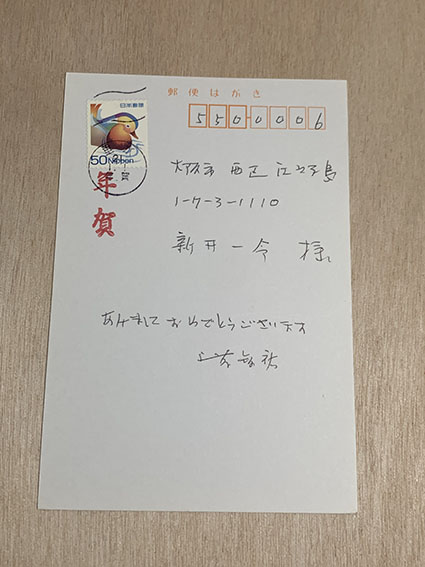 郵便はがき
日本郵便
50 NIPPON
年賀
550 0006
大阪市 西区 江之子島
1-7-3-1110
新井一令 様
あけまして おめでとうございます